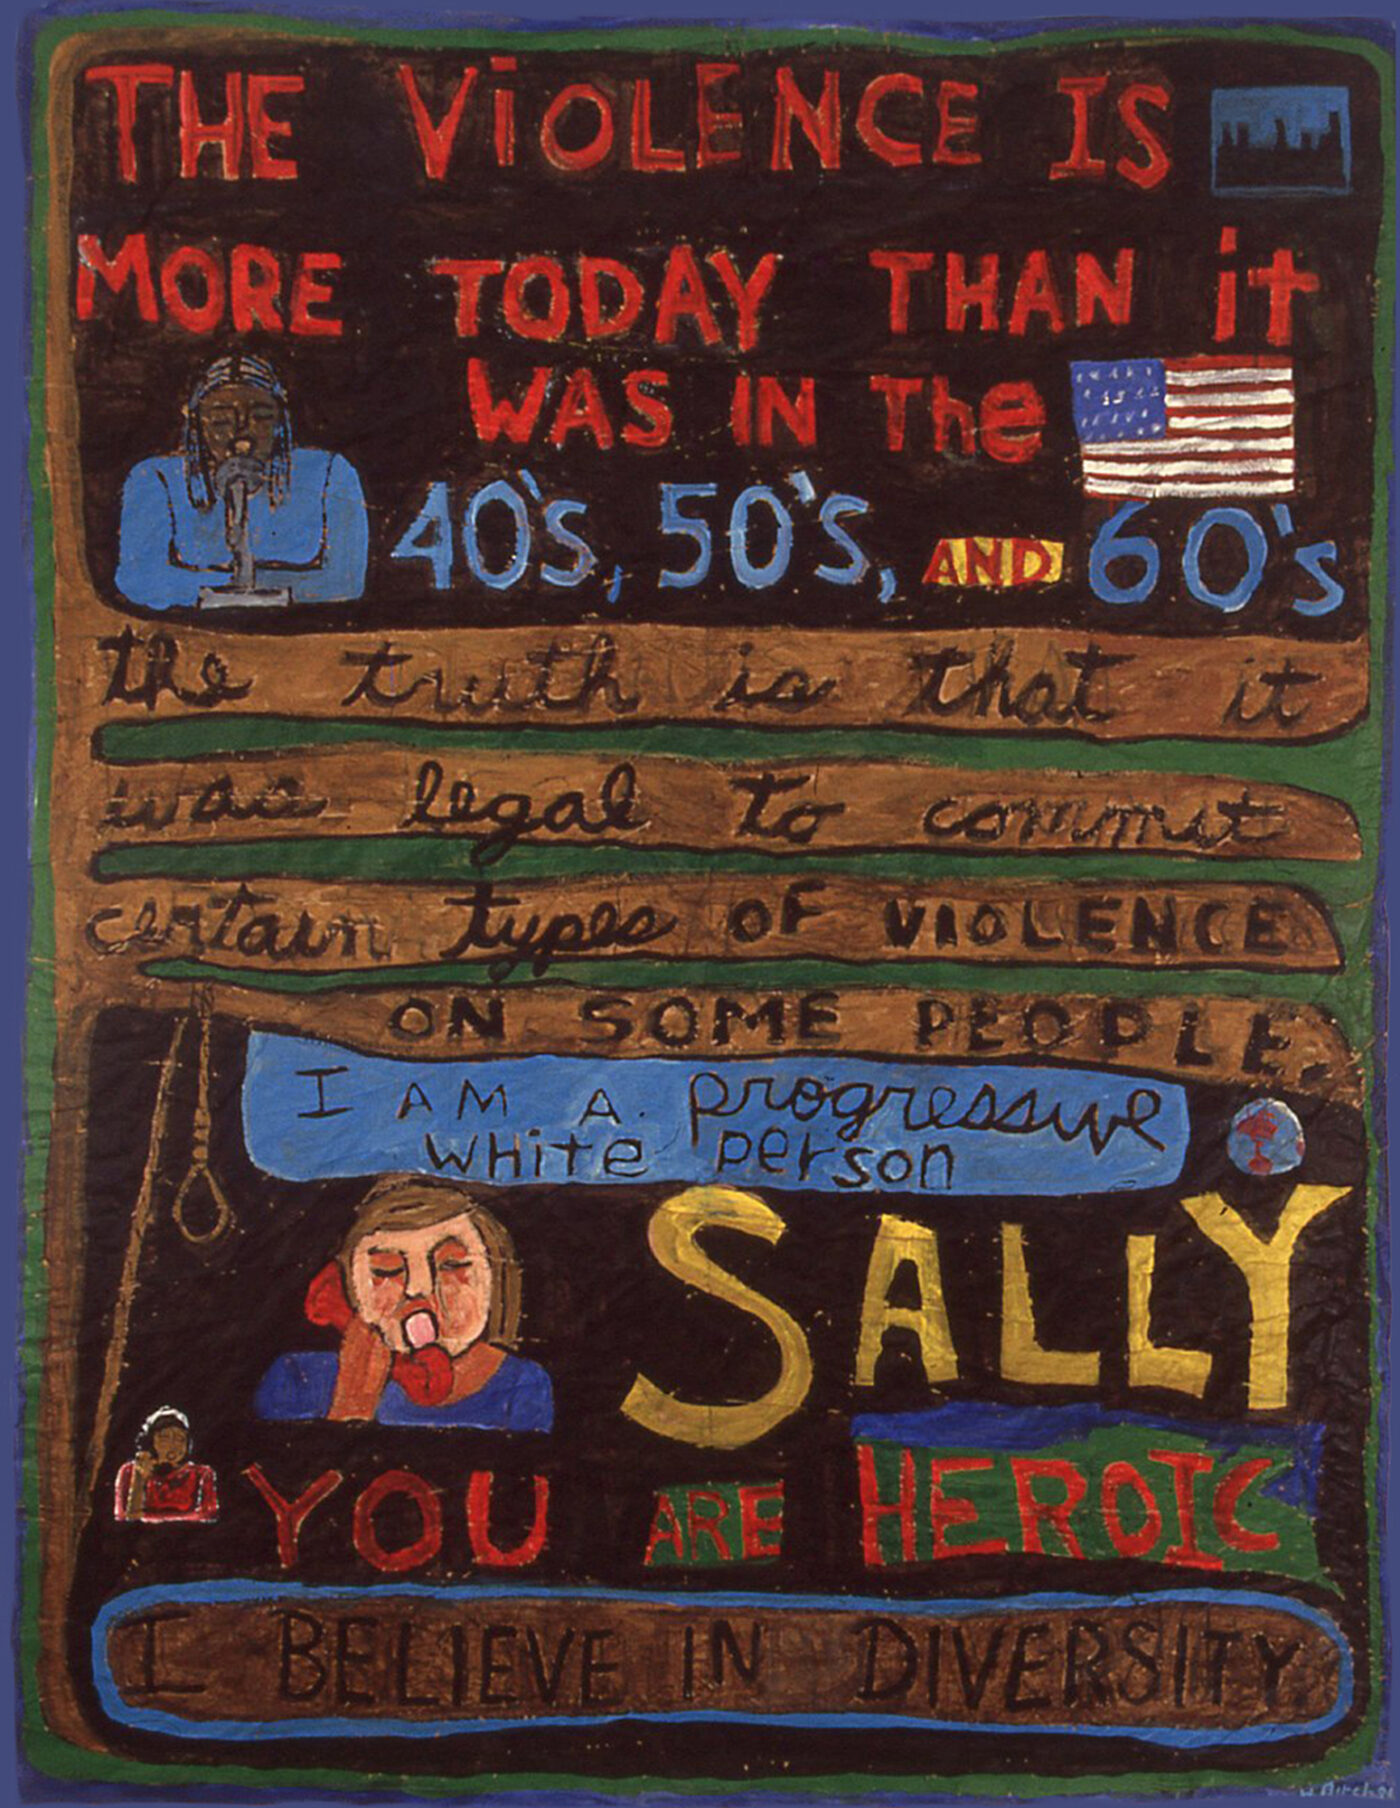 THE ViOLENCE IS
MORE TODAY THAN it
WAS IN The
40's, 50's, AND 60's
the truth is that it
was legal to commit
certain types OF VIOLENCE
ON SOME PEOPLE.
I AM A. progressive
white person
SALLY
YOU ARE HEROIC
I BELIEVE IN DIVERSITY